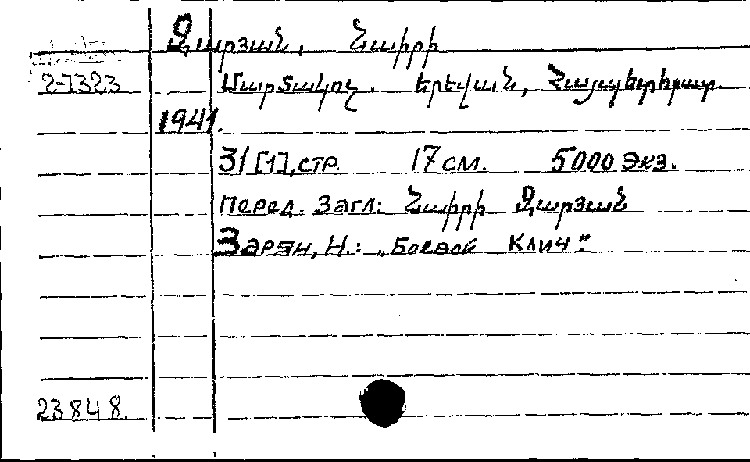 Զարյան, Նաիրի
2-7323 Մարտակոչ. Երեվան, Հայպետհրատ.
1941.
31 [1], стр. 17 см. 5000 экз.
Перед. Загл: Նաիրի Զարյան
Зарян, Н.: „Боевой Клич".
23848.